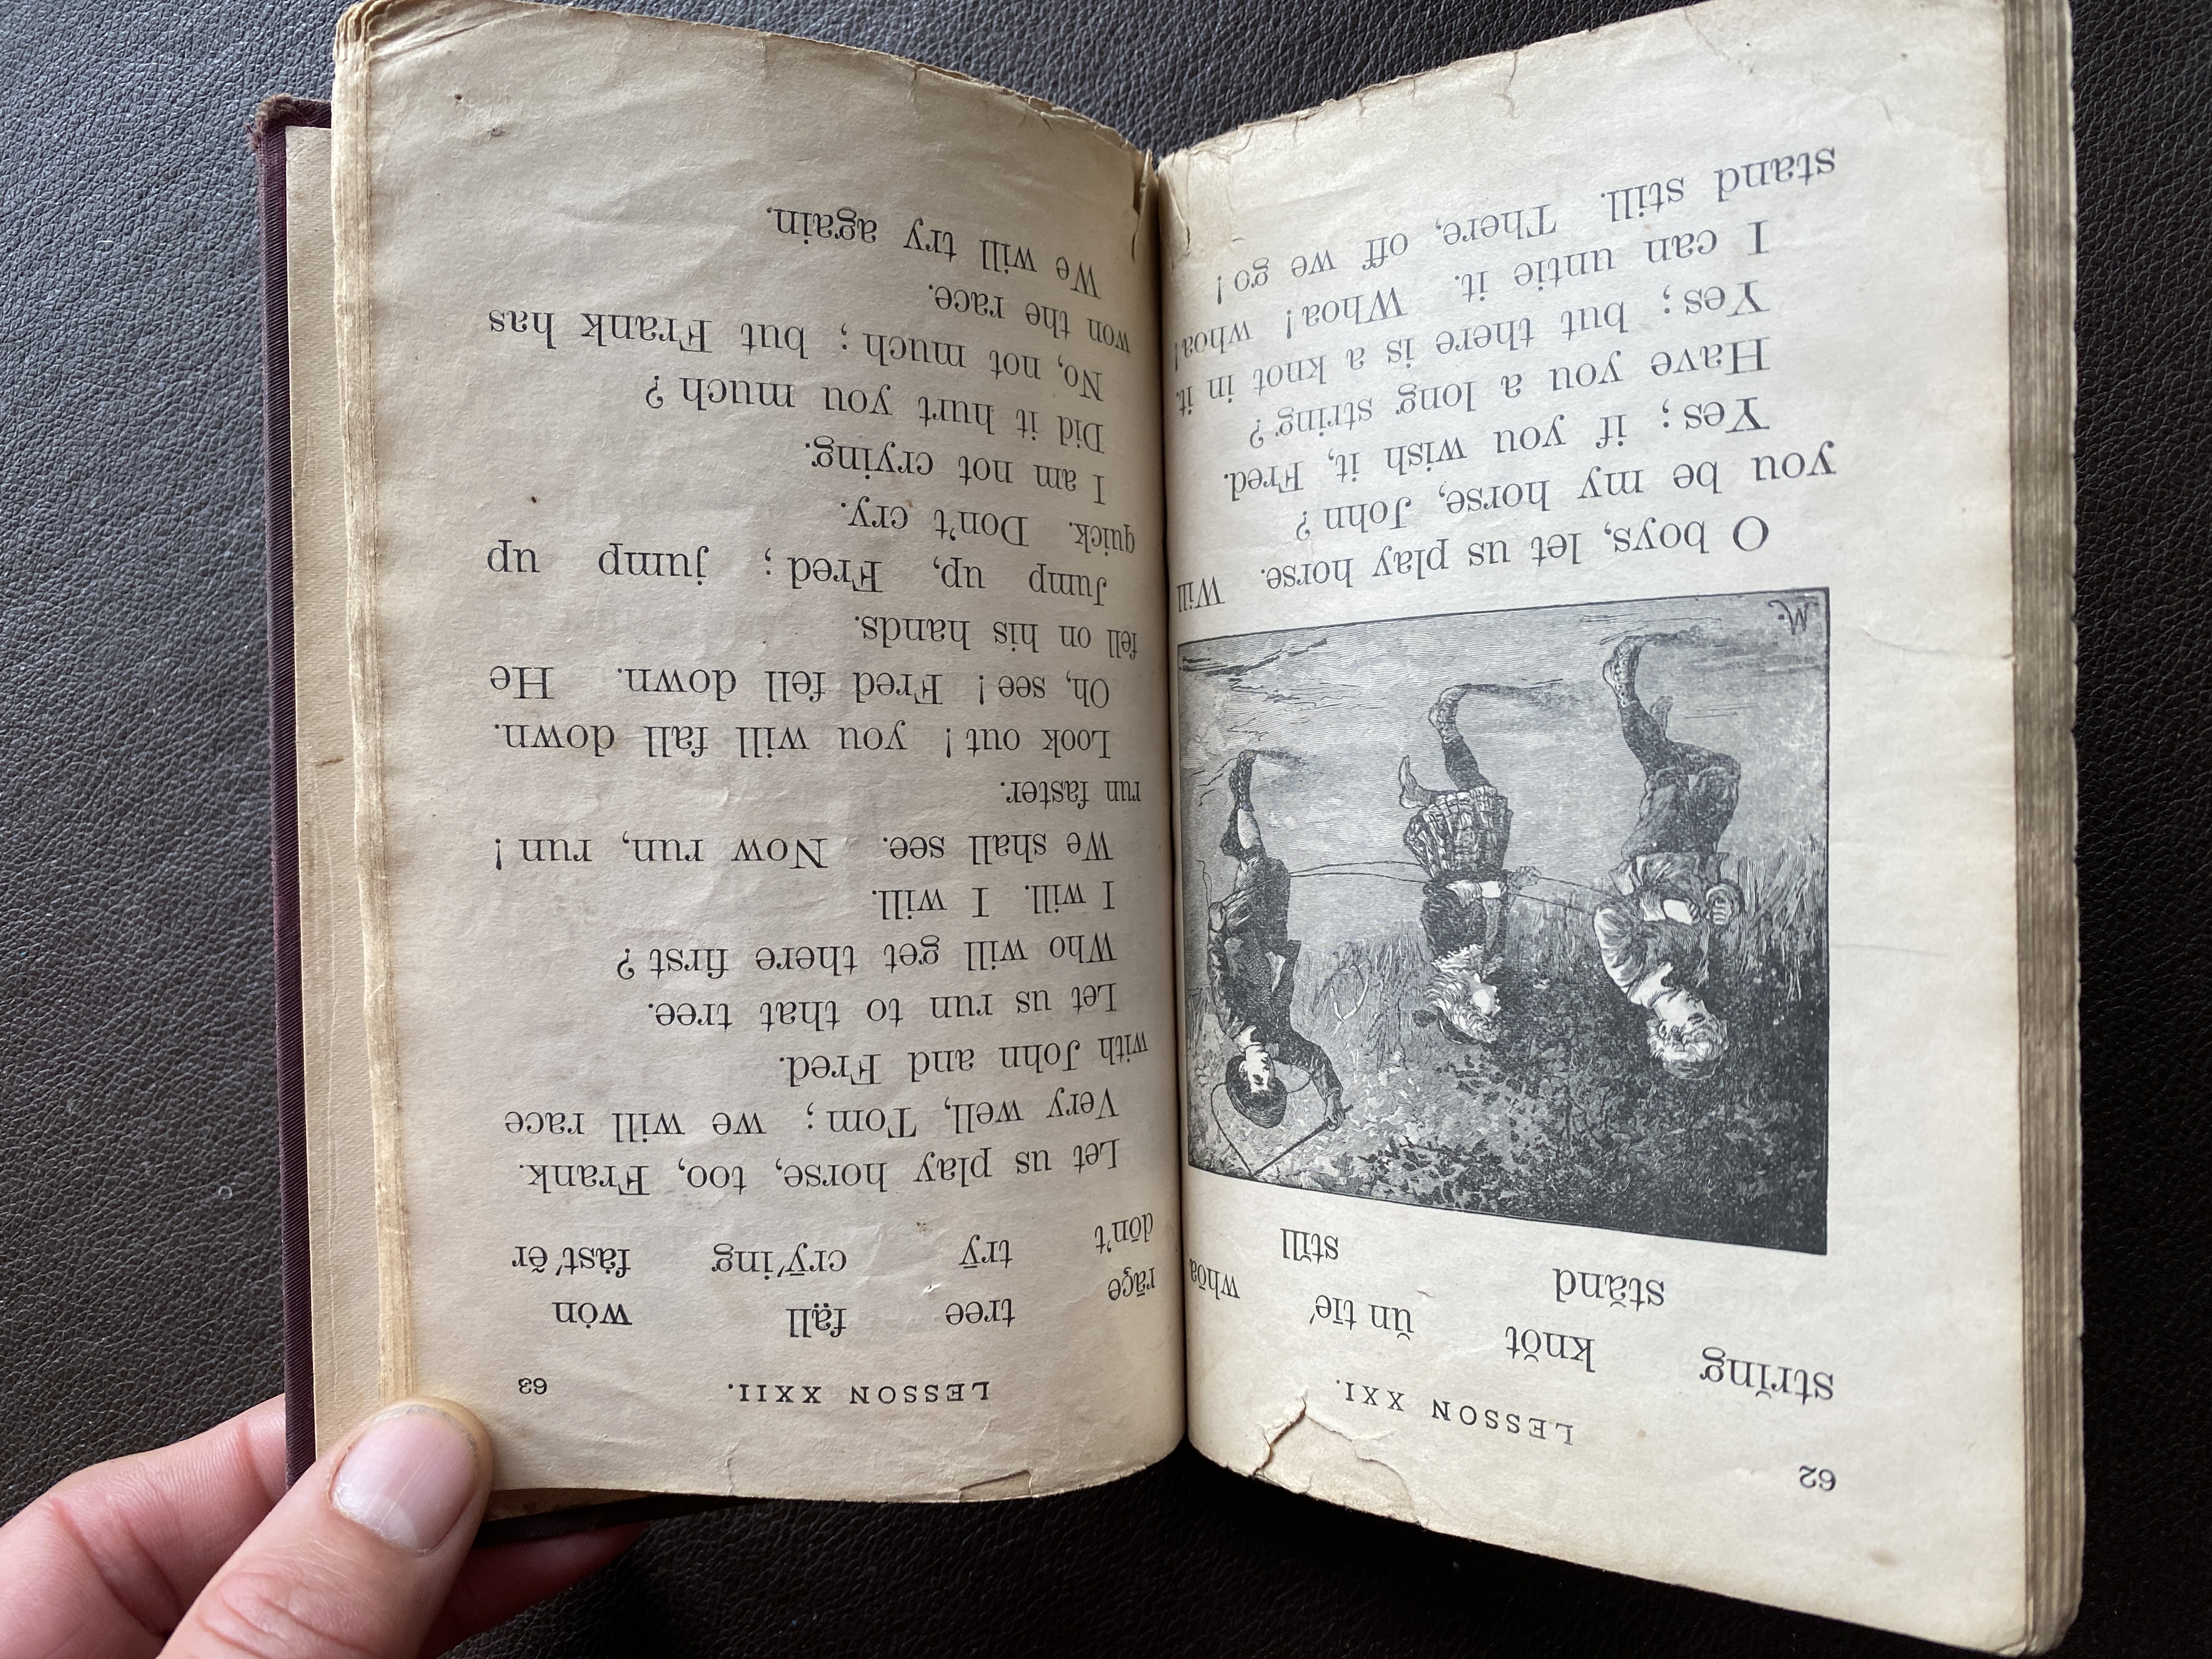 62
LESSON XXI.
strĭng knŏt ŭn tīe′ whōa
stănd stĭll
W.
O boys, let us play horse. Will
you be my horse, John?
Yes; if you wish it, Fred.
Have you a long string?
Yes; but there is a knot in it.
I can untie it. Whoa! whoa!
stand still. There, off we go!
LESSON XXII. 63
rāçe tree fạll wȯn
dōn't trȳ crȳ′ing fȧst′ẽr
Let us play horse, too, Frank.
Very well, Tom; we will race
with John and Fred.
Let us run to that tree.
Who will get there first?
I will. I will.
We shall see. Now run, run!
run faster.
Look out! you will fall down.
Oh, see! Fred fell down. He
fell on his hands.
Jump up, Fred; jump up
quick. Don't cry.
I am not crying.
Did it hurt you much?
No, not much; but Frank has
won the race.
We will try again.